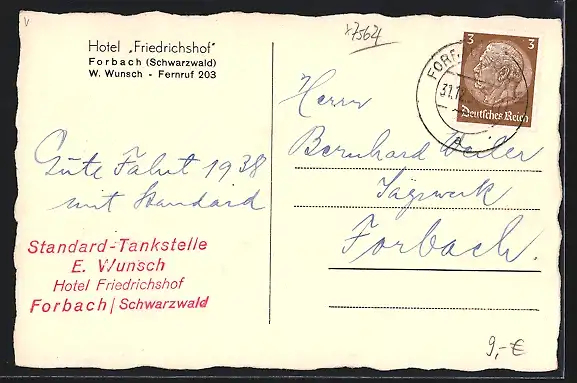 Hotel „Friedrichshof"
Forbach (Schwarzwald)
W. Wunsch - Fernruf 203
x7562
3 3
Deutsches Reich
31.1
Gute Fahrt 1938
mit Standard
Standard-Tankstelle
E. Wunsch
Hotel Friedrichshof
Forbach/Schwarzwald
Herrn
Bernhard Weiler
Sägewerk
Forbach.
9,-€